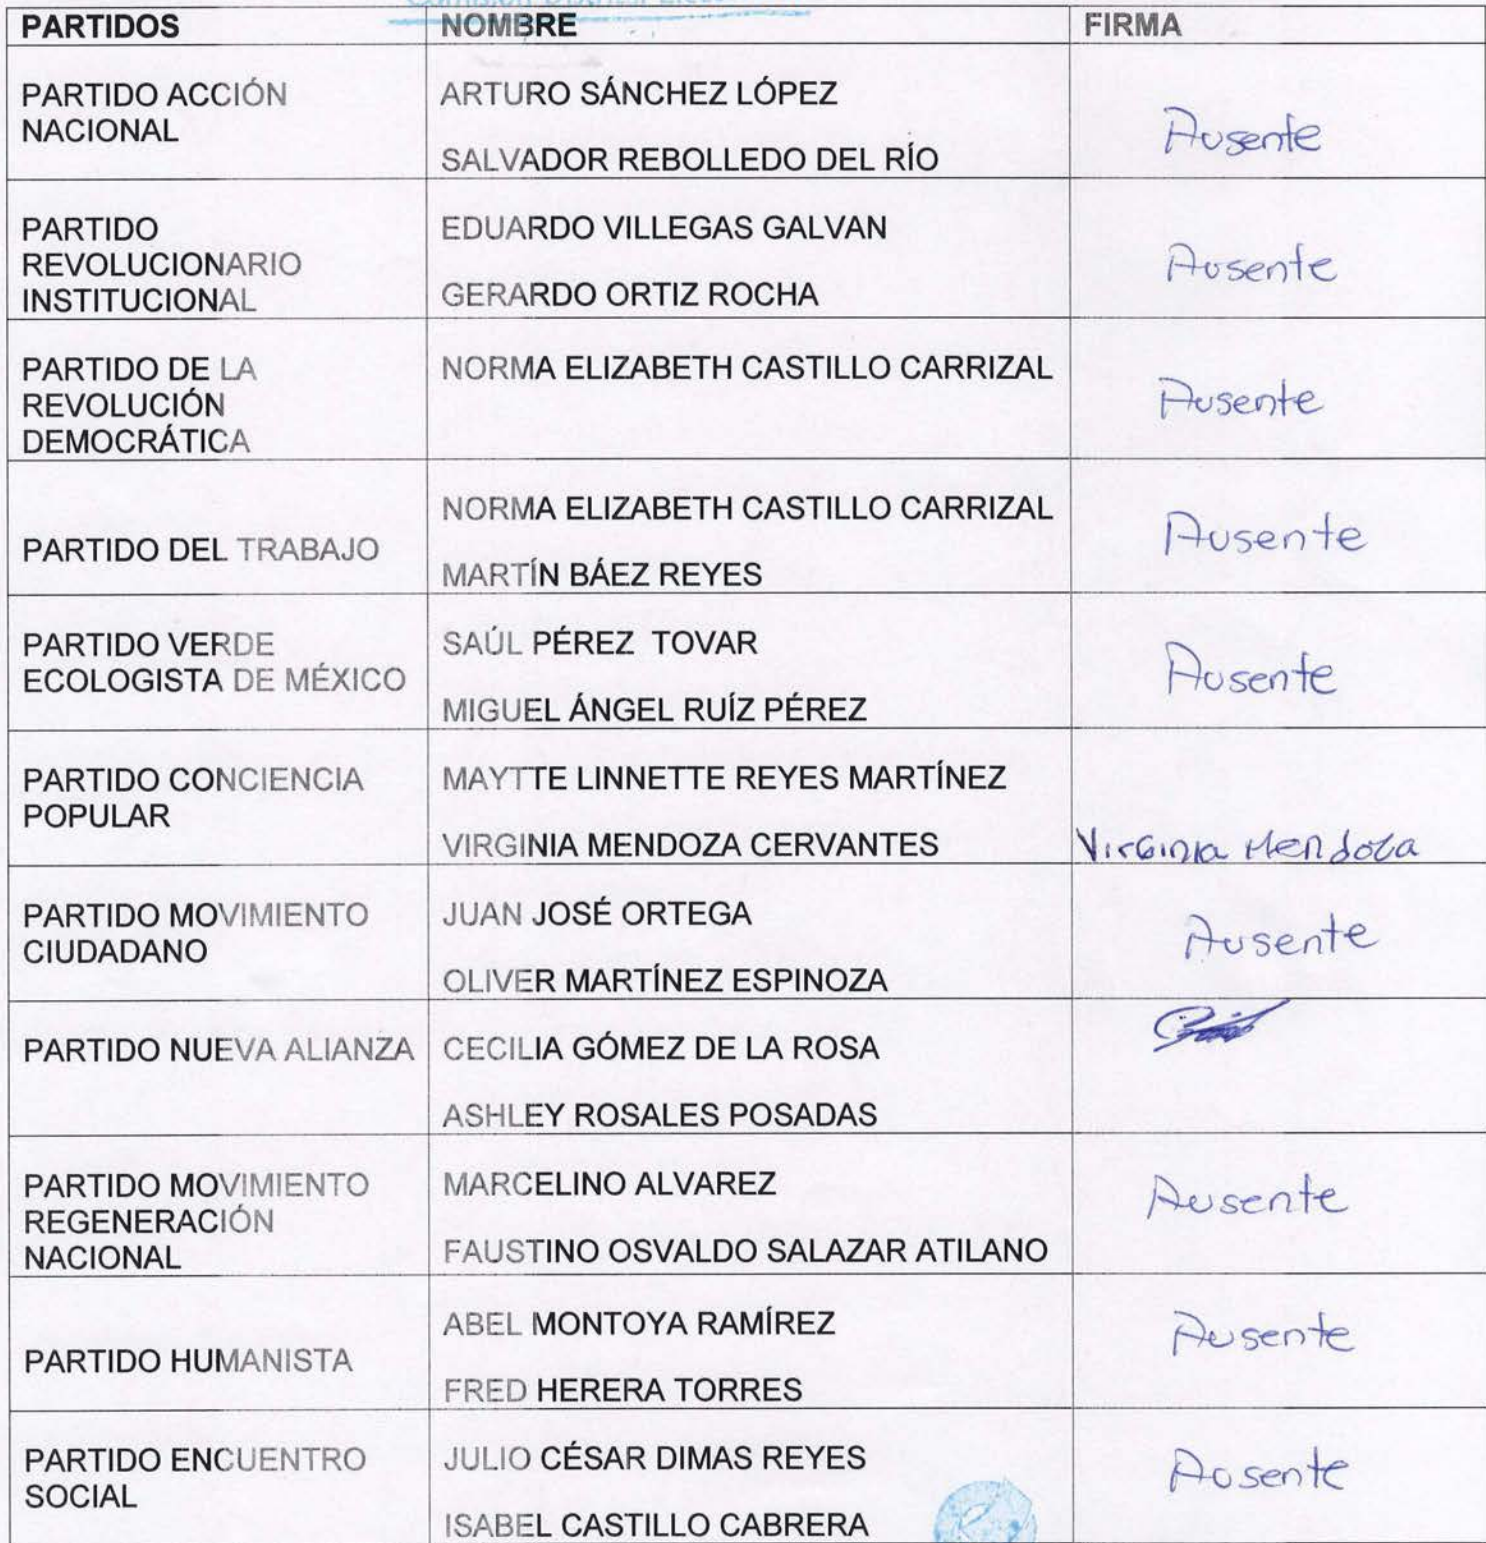 PARTIDOS NOMBRE FIRMA
PARTIDO ACCIÓN
NACIONAL
ARTURO SÁNCHEZ LÓPEZ
SALVADOR REBOLLEDO DEL RÍO
Ausente
PARTIDO
REVOLUCIONARIO
INSTITUCIONAL
EDUARDO VILLEGAS GALVAN
GERARDO ORTIZ ROCHA
Ausente
PARTIDO DE LA
REVOLUCIÓN
DEMOCRÁTICA
NORMA ELIZABETH CASTILLO CARRIZAL
Ausente
PARTIDO DEL TRABAJO
NORMA ELIZABETH CASTILLO CARRIZAL
MARTÍN BÁEZ REYES
Ausente
PARTIDO VERDE
ECOLOGISTA DE MÉXICO
SAÚL PÉREZ TOVAR
MIGUEL ÁNGEL RUÍZ PÉREZ
Ausente
PARTIDO CONCIENCIA
POPULAR
MAYTTE LINNETTE REYES MARTÍNEZ
VIRGINIA MENDOZA CERVANTES
Virginia Mendoza
PARTIDO MOVIMIENTO
CIUDADANO
JUAN JOSÉ ORTEGA
OLIVER MARTÍNEZ ESPINOZA
Ausente
PARTIDO NUEVA ALIANZA
CECILIA GÓMEZ DE LA ROSA
ASHLEY ROSALES POSADAS
PARTIDO MOVIMIENTO
REGENERACIÓN
NACIONAL
MARCELINO ALVAREZ
FAUSTINO OSVALDO SALAZAR ATILANO
Ausente
PARTIDO HUMANISTA
ABEL MONTOYA RAMÍREZ
FRED HERERA TORRES
Ausente
PARTIDO ENCUENTRO
SOCIAL
JULIO CÉSAR DIMAS REYES
ISABEL CASTILLO CABRERA
Ausente